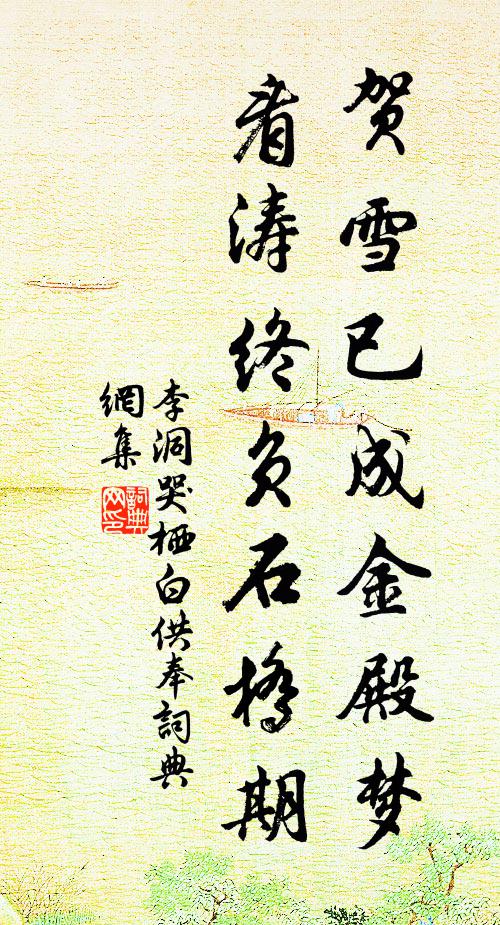 贺雪已成金殿梦
看涛终负石桥期
李洞哭栖白供奉詞典
網集
詞典
网印